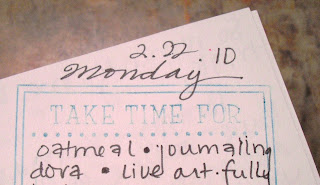 2.22.10
monday
TAKE TIME FOR
oatmeal • journaling
dora • live art.fully